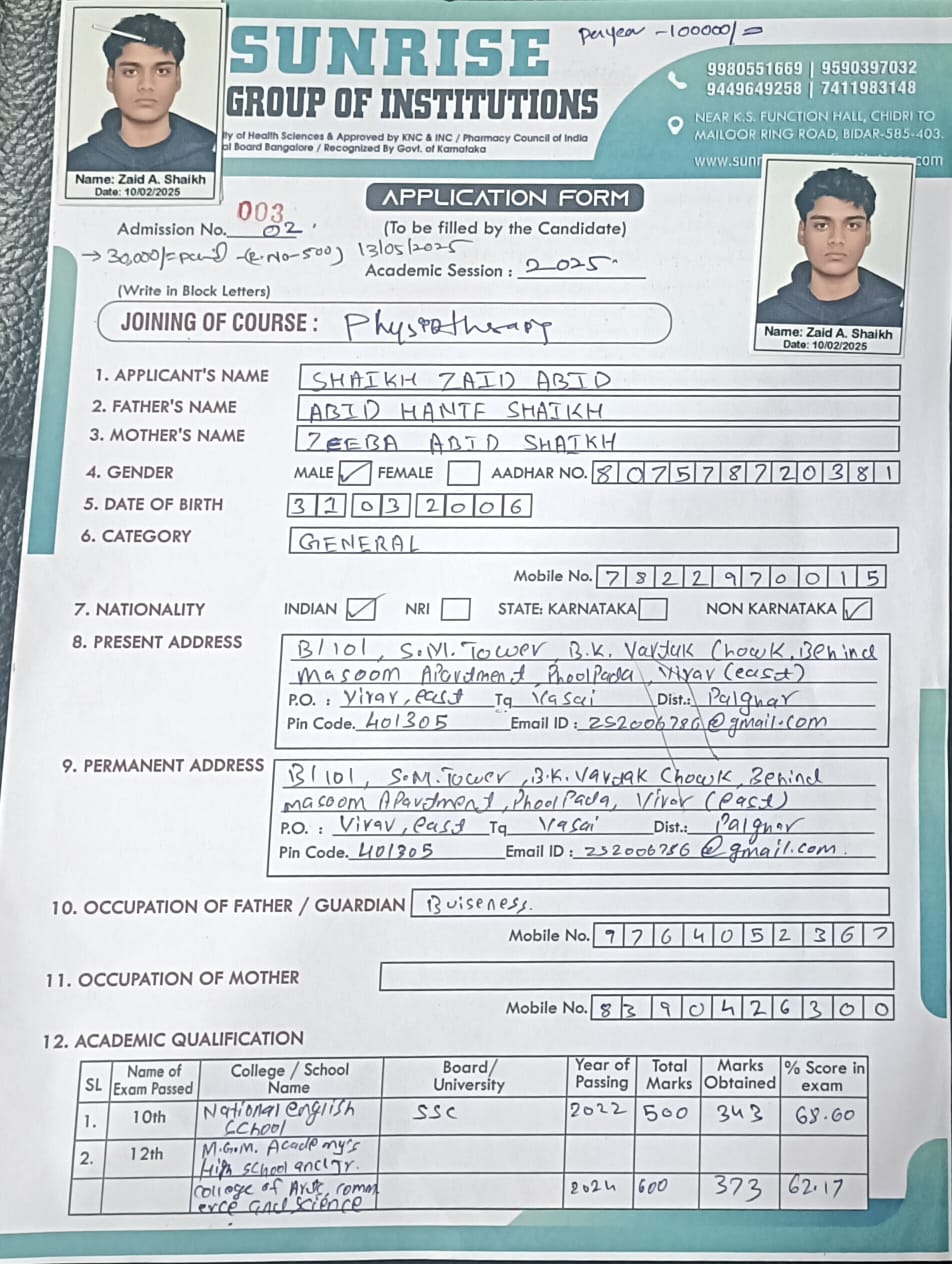 per year -100000/=
SUNRISE
GROUP OF INSTITUTIONS
ity of Health Sciences & Approved by KNC & INC / Pharmacy Council of India
al Board Bangalore / Recognized By Govt. of Karnataka
9980551669 | 9590397032
9449649258 | 7411983148
NEAR K.S. FUNCTION HALL, CHIDRI TO
MAILOOR RING ROAD, BIDAR-585-403.
www.sunr com
Name: Zaid A. Shaikh
Date: 10/02/2025
APPLICATION FORM
003
Admission No. 02
(To be filled by the Candidate)
→ 30,000/= paid -(R.No-500) 13/05/2025
Academic Session : 2025
Name: Zaid A. Shaikh
Date: 10/02/2025
(Write in Block Letters)
JOINING OF COURSE : Physiotherapy
1. APPLICANT'S NAME SHAIKH ZAID ABID
2. FATHER'S NAME ABID HANIF SHAIKH
3. MOTHER'S NAME ZEEBA ABID SHAIKH
4. GENDER MALE ✓ FEMALE AADHAR NO. 807578720381
5. DATE OF BIRTH 31 03 2006
6. CATEGORY GENERAL
Mobile No. 7822970015
7. NATIONALITY INDIAN ✓ NRI STATE: KARNATAKA NON KARNATAKA ✓
8. PRESENT ADDRESS B/101, S.M.Tower, B.K. Vartak Chowk, Behind
masoom Apartment, PhoolPada, Virar (east)
P.O. : Virar, east Tq Vasai Dist.: Palghar
Pin Code. 401305 Email ID : 252006786@gmail.com
9. PERMANENT ADDRESS B/101, S.M.Tower, B.K. Vardak Chowk, Behind
masoom APardment, PhoolPada, Virar (east)
P.O. : Virar, east Tq Vasai Dist.: Palghar
Pin Code. 401305 Email ID : 252006786@gmail.com.
10. OCCUPATION OF FATHER / GUARDIAN Buiseness.
Mobile No. 9764052367
11. OCCUPATION OF MOTHER
Mobile No. 8390426300
12. ACADEMIC QUALIFICATION
SL Name of Exam Passed College / School Name Board/ University Year of Passing Total Marks Marks Obtained % Score in exam
1. 10th National english School SSC 2022 500 343 68.60
2. 12th M.G.M. Academy's High school and Jr.
college of Arts, comm erce and science 2024 600 373 62.17